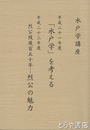 水戸学講座
平成二十一年度
「水戸学」を考える
平成二十二年度
烈公歿後百五十年―烈公の魅力